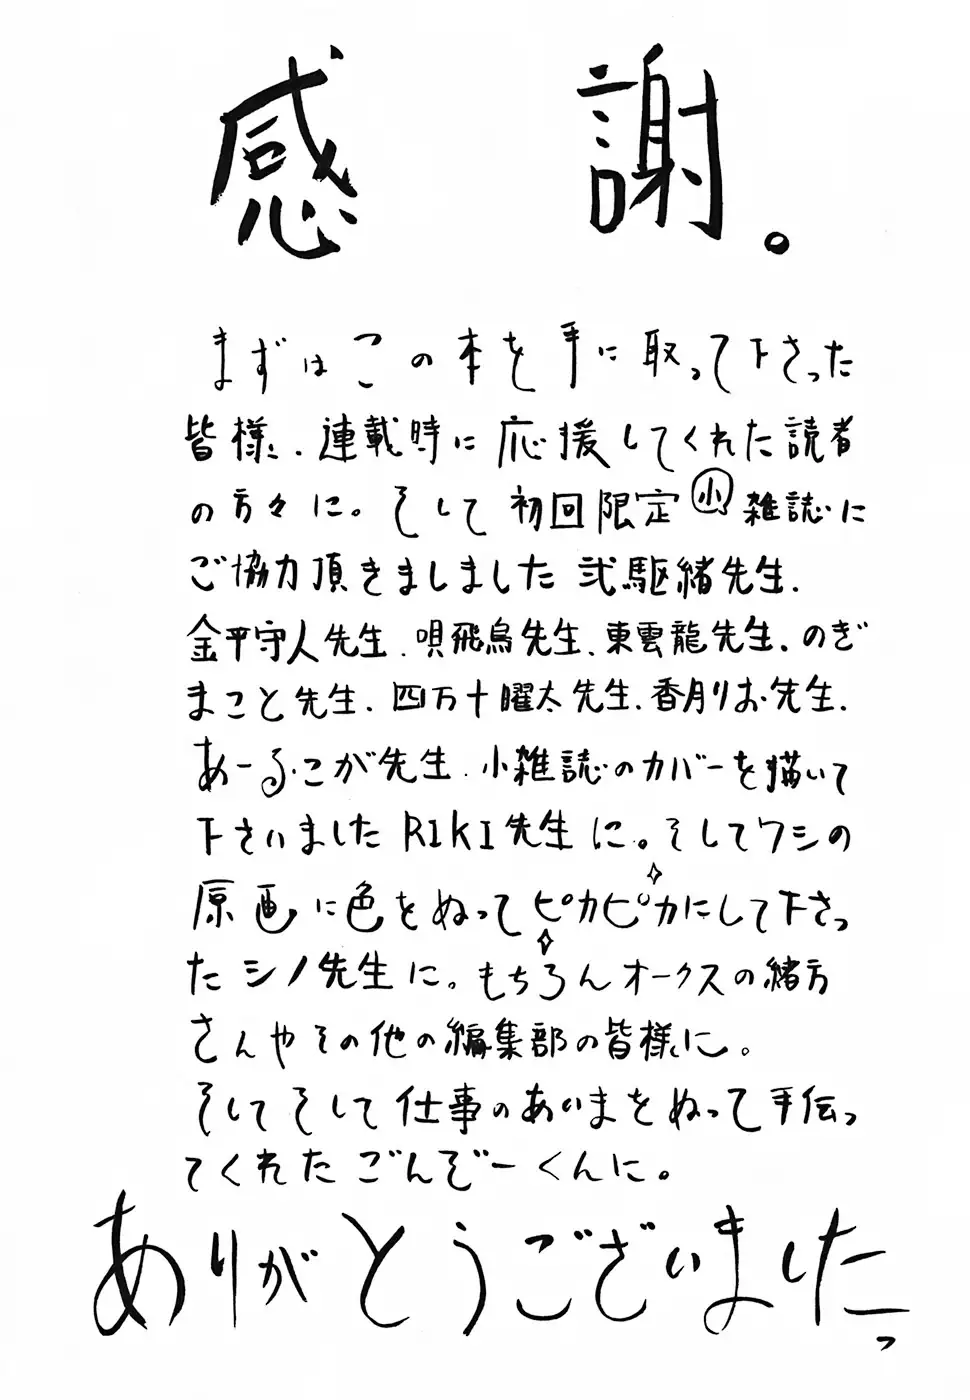 感謝。
まずはこの本を手に取って下さった
皆様、連載時に応援してくれた読者
の方々に。そして初回限定小雑誌に
ご協力頂きましました弐駆緒先生、
金平守人先生、唄飛鳥先生、東雲龍先生、のぎ
まこと先生、四万十曜太先生、香月りお先生、
あーるこが先生、小雑誌のカバーを描いて
下さいましたRIKI先生に。そしてワシの
原画に色をぬってピカピカにして下さっ
たシノ先生に。もちろんオークスの緒方
さんやその他の編集部の皆様に。
そしてそして仕事のあいまをぬって手伝っ
てくれたごんぞーくんに。
ありがとうございました